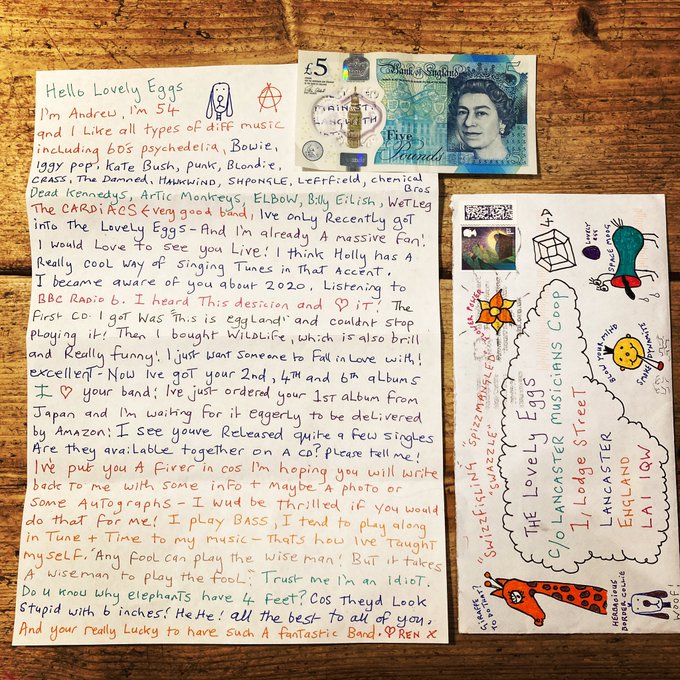 Hello Lovely Eggs
I'm Andrew, I'm 54
and I Like all types of diff music
including 60's psychedelia, Bowie,
Iggy pop, Kate Bush, punk, Blondie,
CRASS, The Damned, HAWKWIND, SHPONGLE, LEFTFIELD, chemical
Bros
Dead Kennedys, Artic Monkeys, ELBOW, Billy Eilish, Wet Leg
The CARDIACS < very good band, I've only Recently got
into The Lovely Eggs - And I'm already A massive fan!
I would Love to see you Live! I think Holly has A
Really cool way of singing Tunes in That Accent.
I became aware of you about 2020. Listening to
BBC Radio 6. I heard This desicion and ♡ iT! The
First CD I got was "This is eggland" and couldnt stop
playing it! Then I bought WILDLIFE, which is also brill
and Really funny! I just want Someone to Fall in Love with!
excellent - Now Ive got your 2nd, 4th and 6th albums
I ♡ your band! I've just ordered your 1st album from
Japan and I'm waiting for it eagerly to be delivered
by Amazon! I see youve Released quite a few singles
Are they available together on A CD? Please tell me!
I've put you A Fiver in cos I'm hoping you will write
back to me with some info + maybe A photo or
some Autographs - I wud be Thrilled if you would
do that for me! I play BASS, I tend to play along
in Tune + Time to my music - thats how Ive Taught
myself. "Any fool can play the wise man! But it takes
A wiseman to play the fool." Trust me I'm an idiot.
Do u know why elephants have 4 feet? Cos Theyd Look
Stupid with 6 inches! HeHe! all the best to all of you.
And your really Lucky to have such A fantastic Band. ♡ REN X
£5
Bank of England
Five
Pounds
"SWIZZFIGLING" "SPIZZMANGLED"
"SWAZZLE"
THE LOVELY EGGS
C/O LANCASTER MUSICIANS COOP
1, LODGE STREET
LANCASTER
ENGLAND
LA1 1QW
4D
LOVELY
EGG
SPACE MOOG
BLOW YOUR MIND
POWER
GIRAFFE
HERBACIOUS
BORDER COLLIE
WOOF!